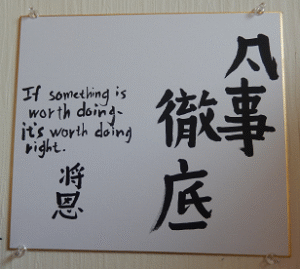 凡事
徹底
If something is
worth doing.
it's worth doing
right.
将恩